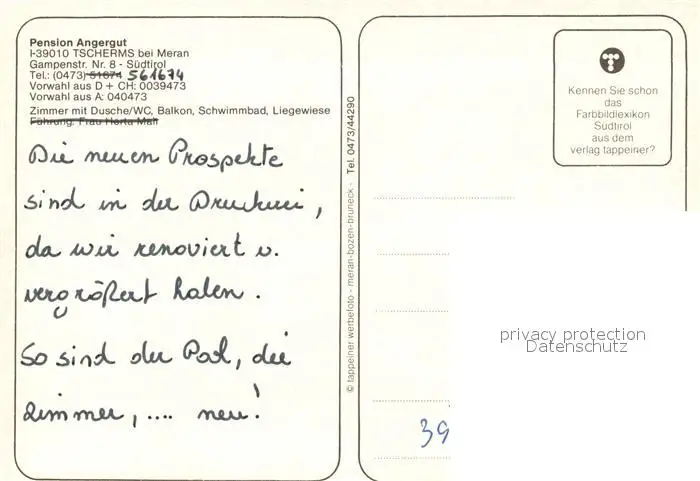 Pension Angergut
I-39010 TSCHERMS bei Meran
Gampenstr. Nr. 8 - Südtirol
Tel.: (0473) 51674 561674
Vorwahl aus D + CH: 0039473
Vorwahl aus A: 040473
Zimmer mit Dusche/WC, Balkon, Schwimmbad, Liegewiese
Führung: Frau Herta Matt
Die neuen Prospekte
sind in der Druckerei,
da wir renoviert u.
vergrößert haben.
So sind der Pool, die
Zimmer, .... neu!
© tappeiner werbefoto - meran-bozen-bruneck - Tel. 0473/44290
Kennen Sie schon
das
Farbbildlexikon
Südtirol
aus dem
verlag tappeiner?
privacy protection
Datenschutz
39